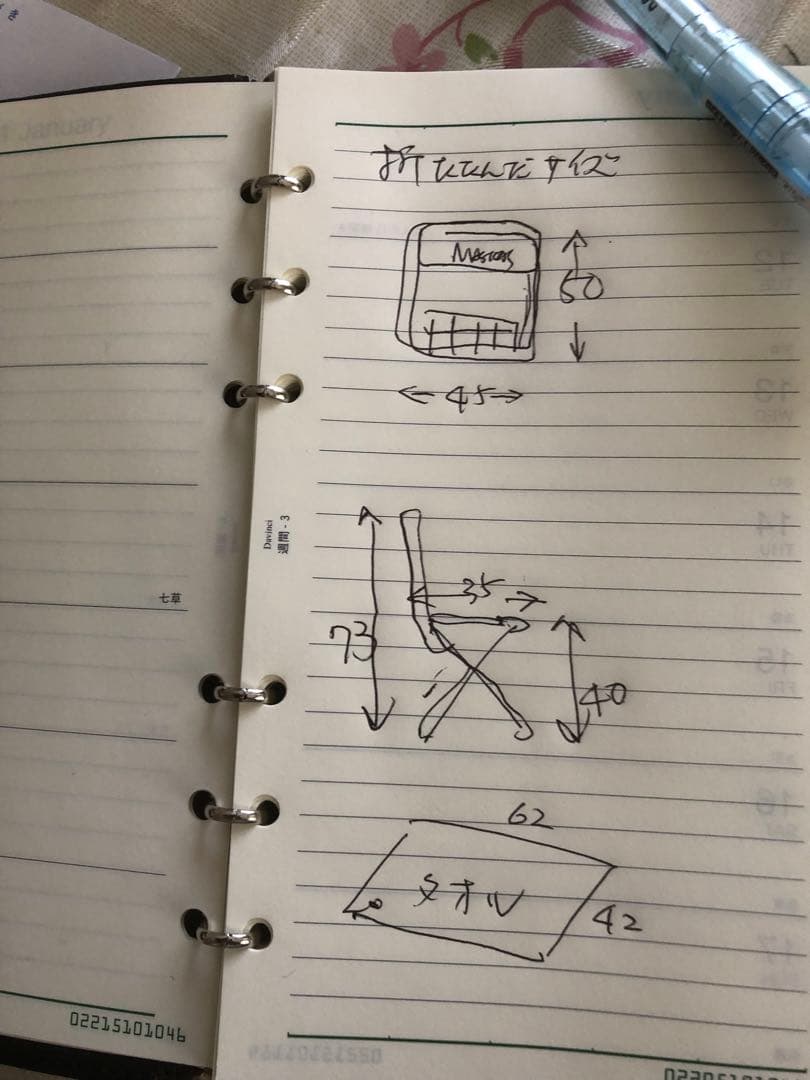 January
折たたんだサイズ
MASTERS
50
45
35
73
40
62
タオル
42
Davinci
週間 - 3
七草
02215101046